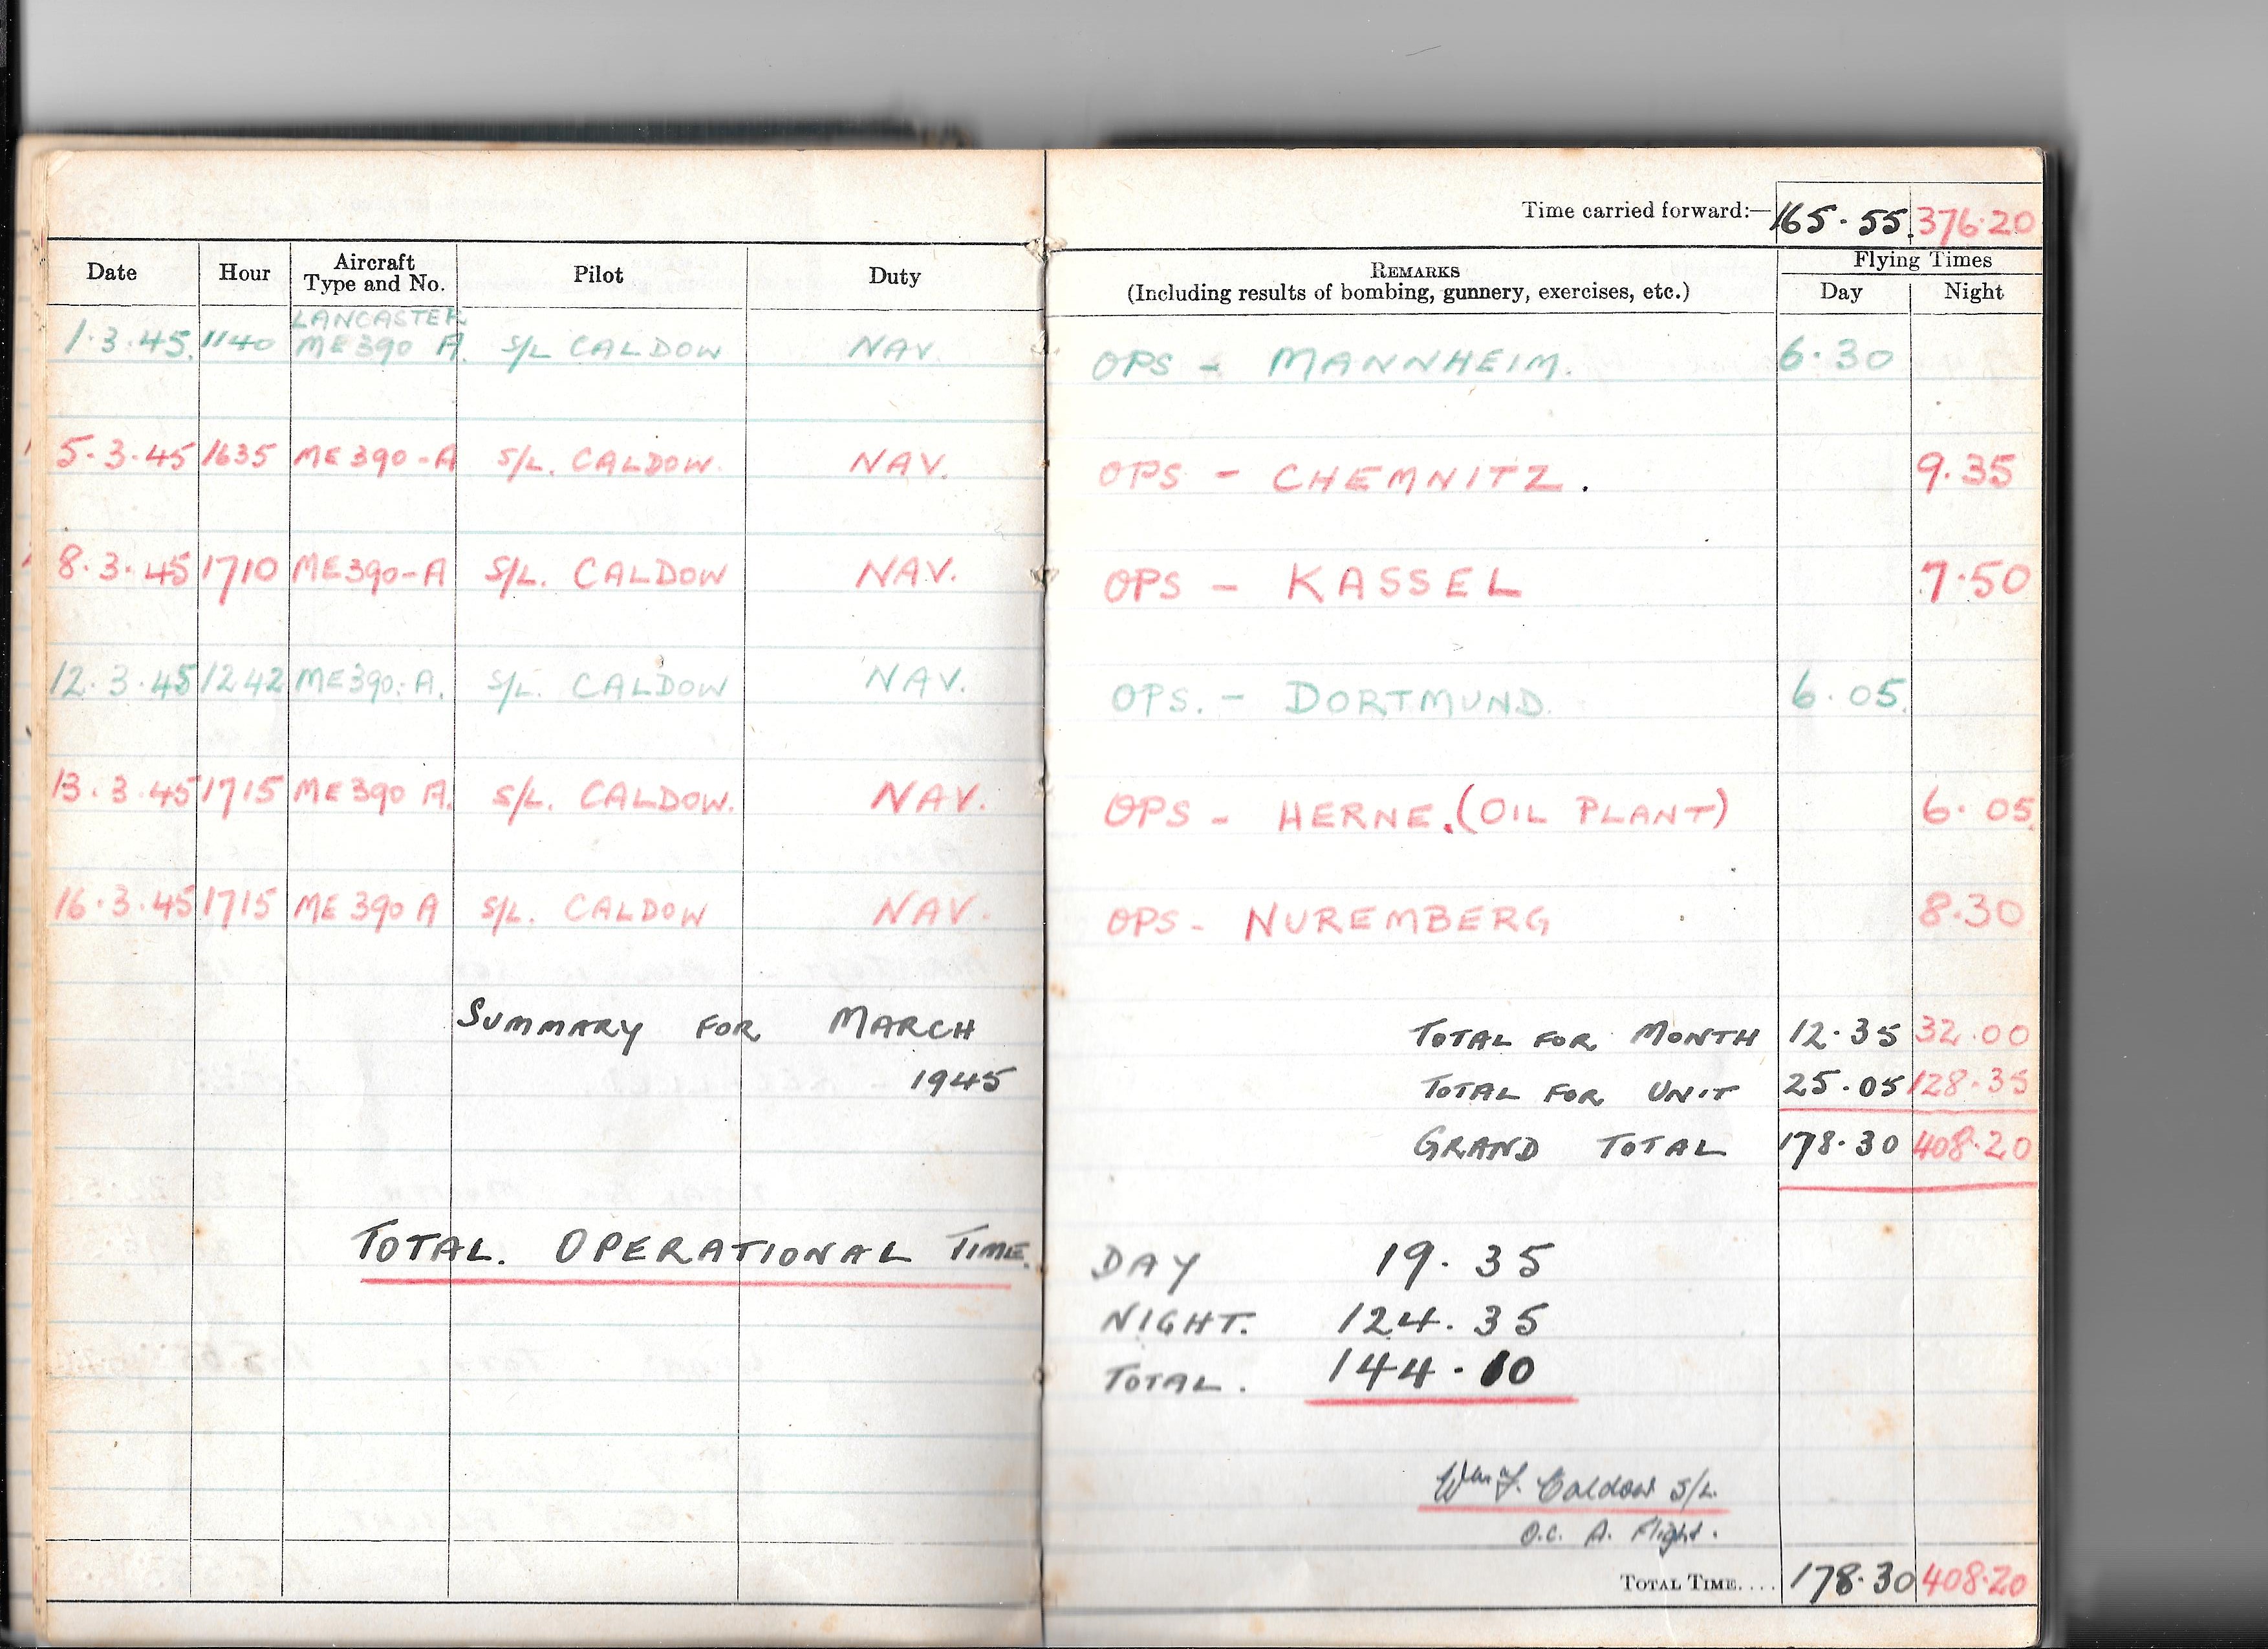 Time carried forward:— 165·55. 376·20
Date Hour Aircraft Type and No. Pilot Duty REMARKS (Including results of bombing, gunnery, exercises, etc.) Flying Times Day Night
LANCASTER
1·3·45. 1140 ME390 A. S/L CALDOW NAV. OPS - MANNHEIM. 6·30
5·3·45 1635 ME390-A S/L. CALDOW. NAV. OPS - CHEMNITZ. 9.35
8·3·45 1710 ME390-A S/L. CALDOW NAV. OPS - KASSEL 7·50
12·3·45 1242 ME390·A. S/L. CALDOW NAV. OPS. - DORTMUND. 6·05.
13·3·45 1715 ME390 A. S/L. CALDOW. NAV. OPS - HERNE. (OIL PLANT) 6·05.
16·3·45 1715 ME390 A S/L. CALDOW NAV. OPS - NUREMBERG 8·30
SUMMARY FOR MARCH TOTAL FOR MONTH 12·35 32.00
1945 TOTAL FOR UNIT 25·05 128·35
GRAND TOTAL 178·30 408·20
TOTAL. OPERATIONAL TIME. DAY 19·35
NIGHT. 124·35
TOTAL. 144·10
Wm F. Caldow S/L.
O.C. A. Flight.
TOTAL TIME.... 178·30 408·20